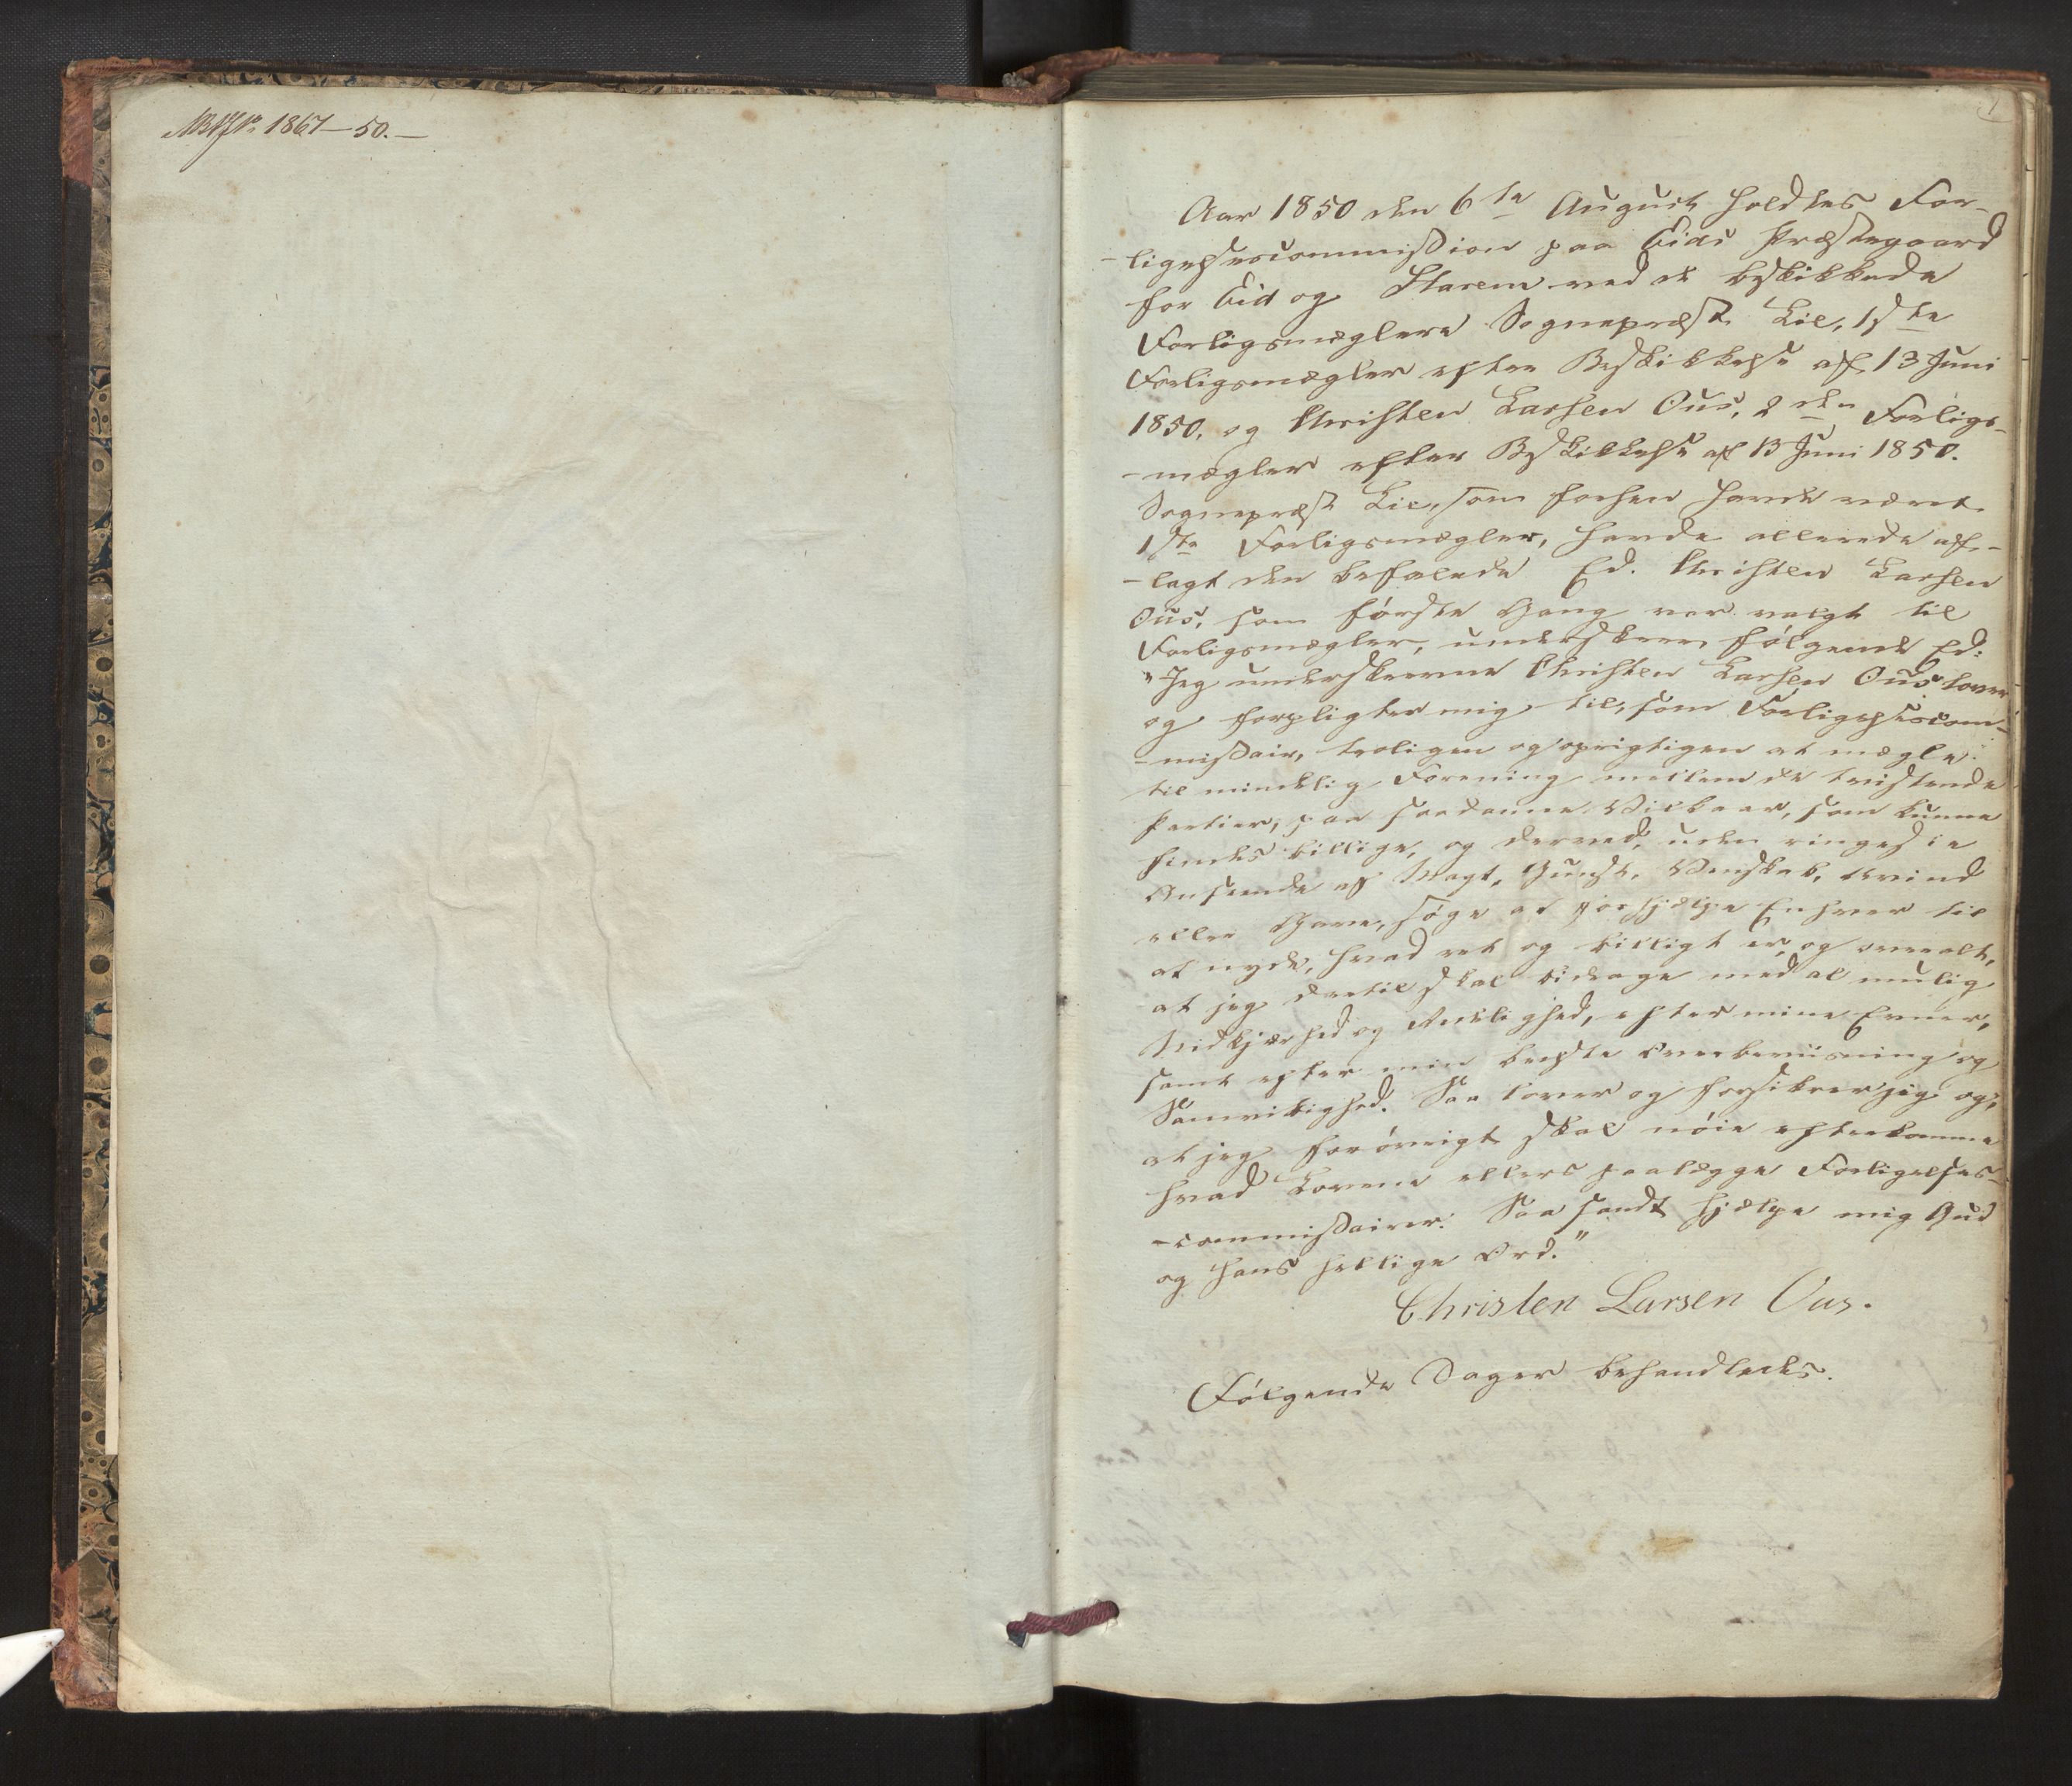 1867–50.–
1
Aar 1850 den 6te August holdtes For-
-ligelsescommission paa Eids Præstegaard
for Eid og Starem ved de beskikkede
Forligsmæglere Sognepræst Lie, 1ste
Forligsmægler efter Beskikkelse af 13 Juni
1850, og Christen Larsen Ous, 2den Forligs-
-mægler efter Beskikkelse af 13 Juni 1850.
Sognepræst Lie, som forhen havde været
1ste Forligsmægler, havde allerede af-
-lagt den befalede Ed. Christen Larsen
Ous, som første Gang var valgt til
Forligsmægler, underskrev følgende Ed:
"Jeg underskrevne Christen Larsen Ous lover
og forpligter mig til, som Forligelsescom-
-missair, troligen og oprigtigen at mægle
til mindelig Forening mellem de tvistende
Partier, paa saadanne Vilkaar, som kunne
findes billige, og derved, uden ringeste
Anseende af Magt, Gunst, Venskab, Avind
eller Gave, søge at forhjælpe Enhver til
at nyde, hvad ret og billigt er, og overalt,
at jeg dertil skal bidrage med al mulig
Nidkjærhed og Redelighed, efter mine Evner,
samt efter min bedste Overbeviisning og
Samvittighed. Saa lover og forsikrer jeg og,
at jeg forøvrigt skal nøie efterkomme
hvad Lovene ellers paalægge Forligelses-
-commissairer. Saa sandt hjælpe mig Gud
og hans hellige Ord."
Christen Larsen Ous.
Følgende Sager behandledes.